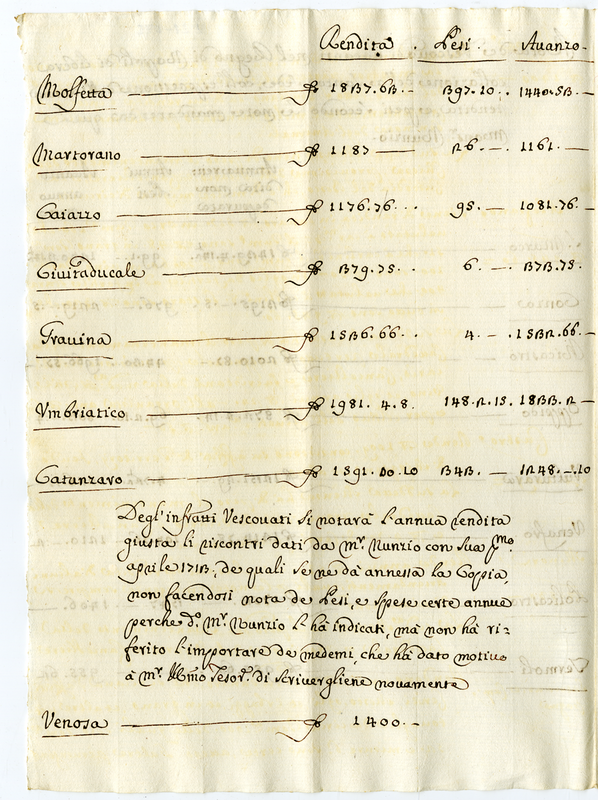 Rendita . Pesi . Avanzo .
Molfetta ₰ 1837.63 . 397.10 . 1440.53 -
Martorano ₰ 1187 — 26 . — . 1161 . —
Caiazzo ₰ 1176.76 . . . 95 . — 1081.76 . —
Civitaducale ₰ 379.75 . . 6 . — . 373.75 .
Gravina ₰ 1536.66 . . 4 . — . 1532.66 . —
Vmbriatico ₰ 1981 . 4 . 8 . 148 . 2 . 15 . 1833 . 2 —
Catanzaro ₰ 1591 . 00 . 10 343 . — 1248 . — . 10
Degl'infratti Vescouati si notarà l'annua rendita
giusta li riscontri dati da Mr. Nunzio con sua pmo.
aprile 1713, de quali se ne dà annessa la Copia,
non facendosi nota de Pesi, e spese certe annue
perche do. Mr. Nunzio l'hà indicati, mà non hà ri=
ferito l'importare de medemi, che hà dato motiuo
à Mr. Illmo Tesorr. di scriuergliene nouamente
Venosa ₰ 1400 . —